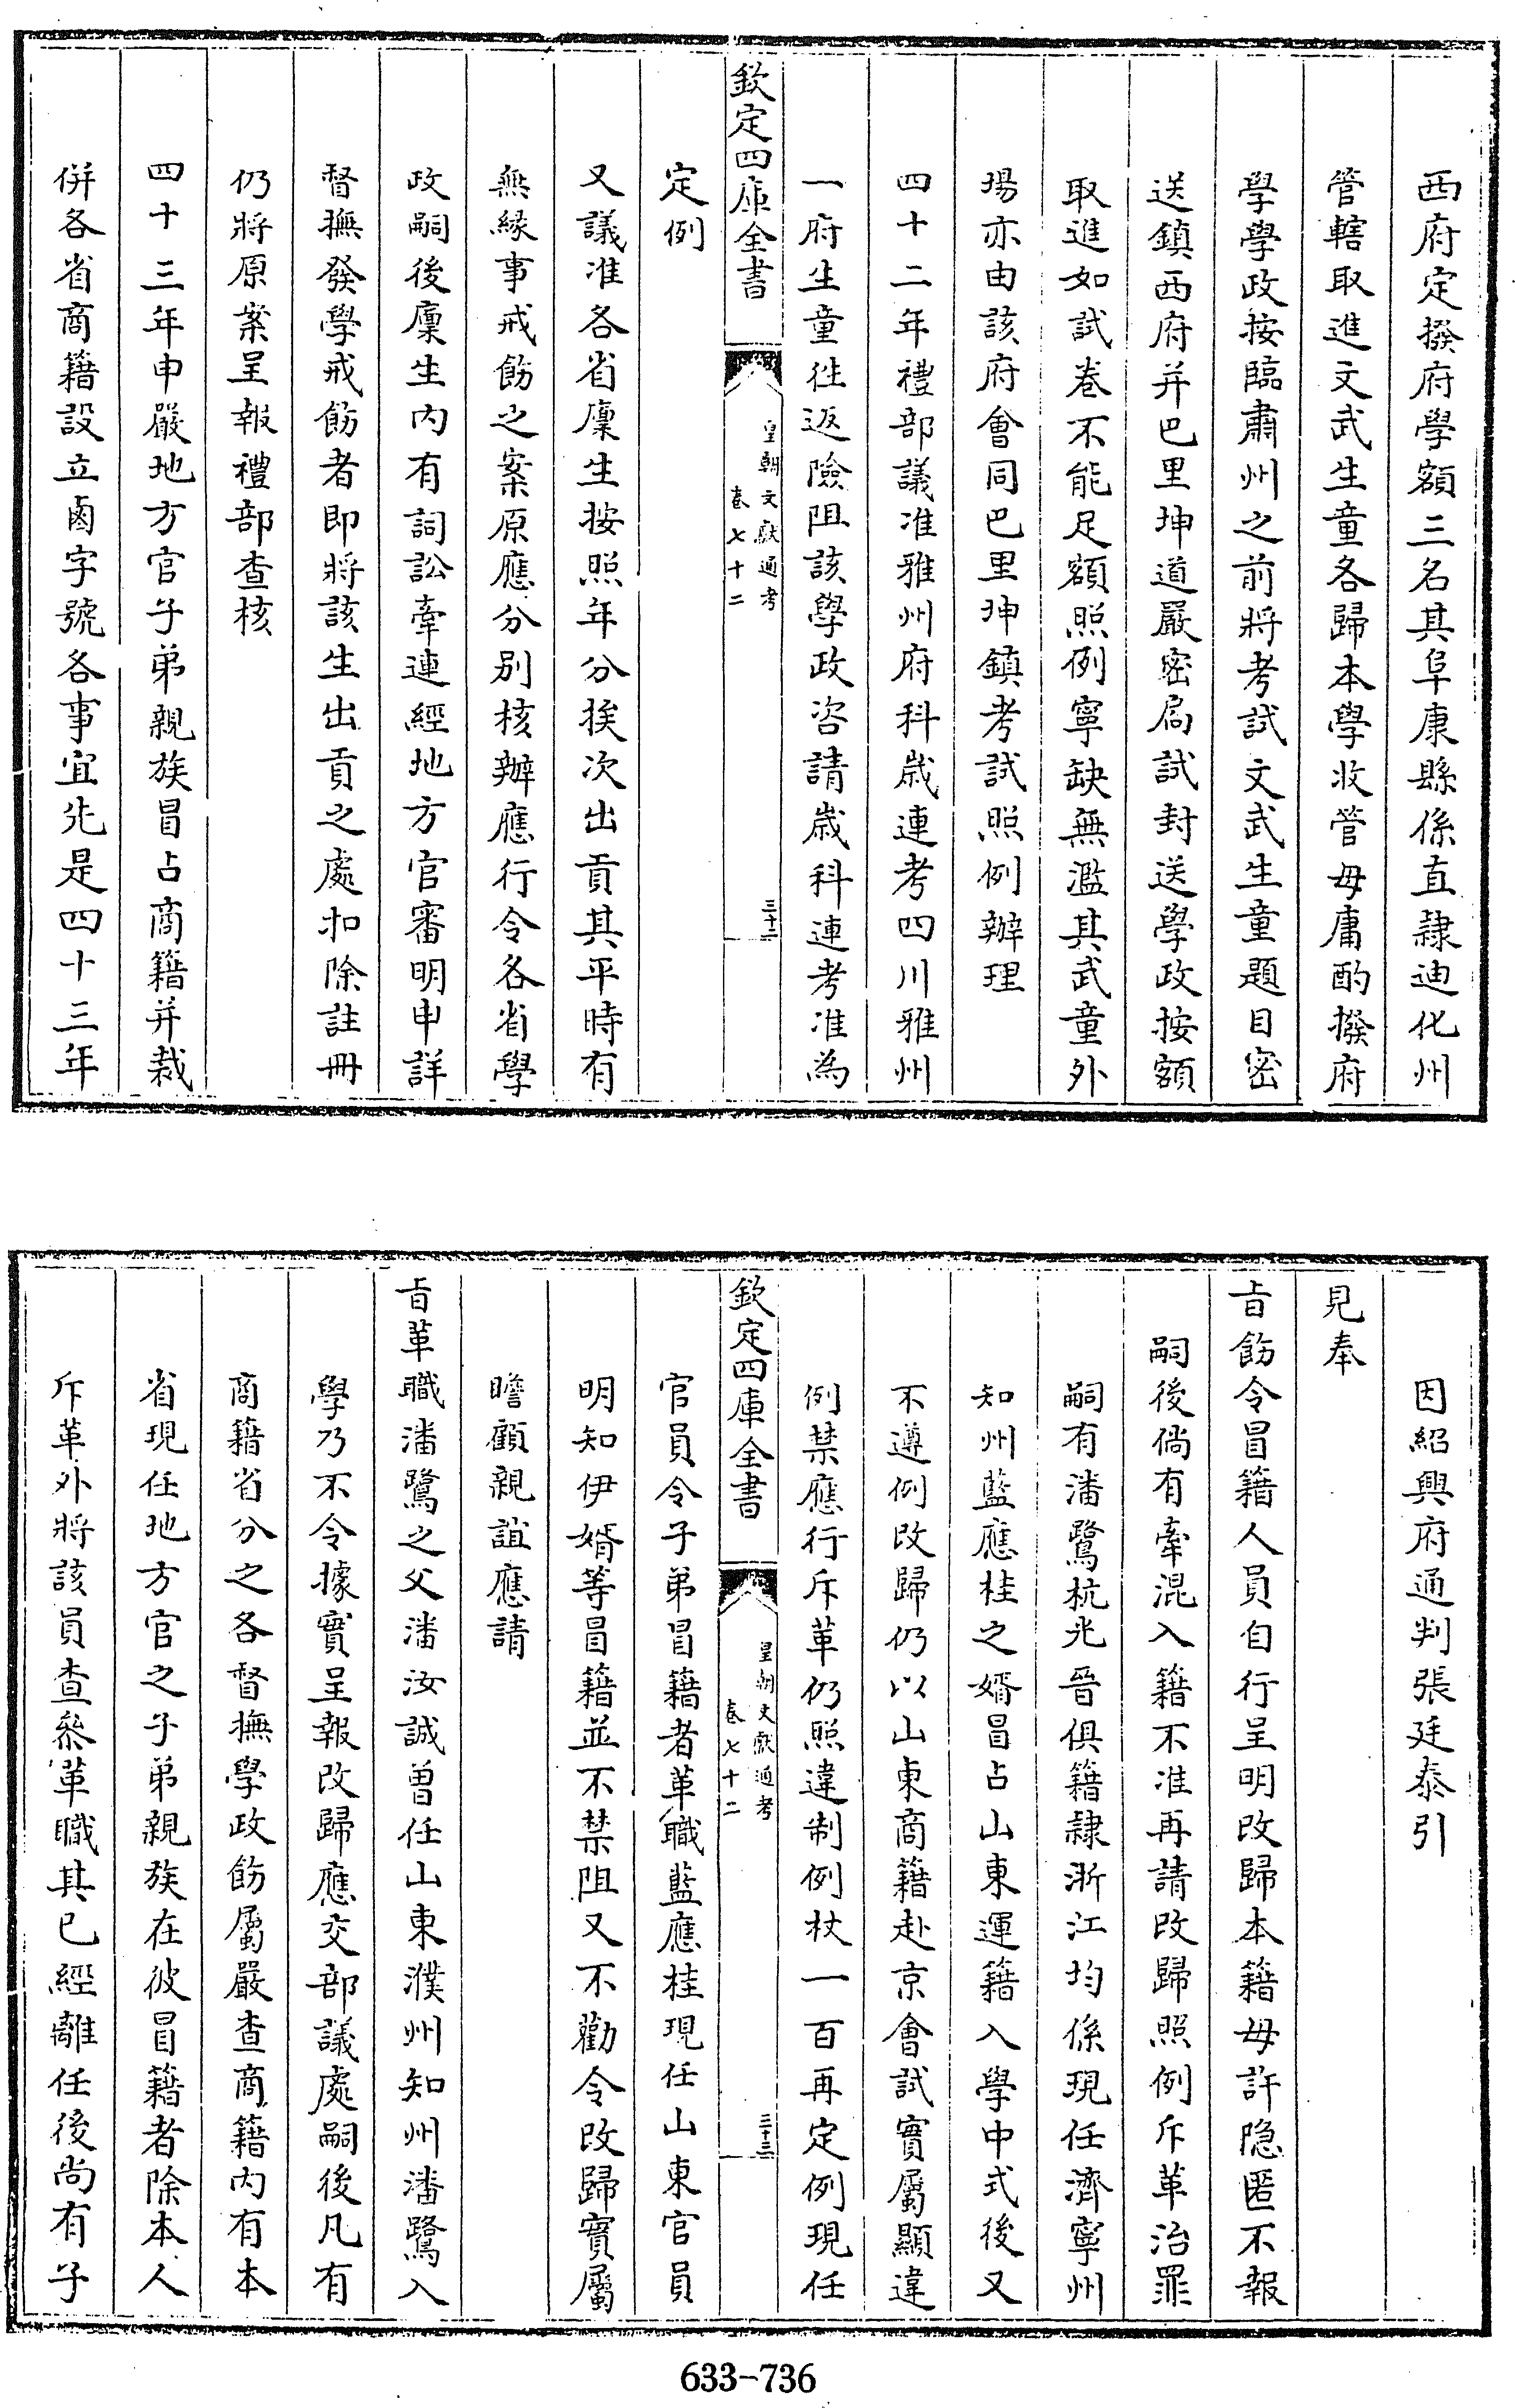 西府定撥府學額三名其阜康縣係直隷迪化州
管轄取進文武生童各歸本學收管毋庸酌撥府
學學政按臨肅州之前將考試文武生童題目密
送鎮西府并巴里坤道嚴密扃試封送學政按額
取進如試卷不能足額照例寧缺無濫其武童外
場亦由該府會同巴里坤鎮考試照例辦理
四十二年禮部議准雅州府科歲連考四川雅州
一府生童往返險阻該學政咨請歲科連考准為
欽定四庫全書
皇朝文獻通考
卷七十二
三十二
定例
又議准各省廪生按照年分挨次出貢其平時有
無緣事戒飭之案原應分別核辦應行令各省學
政嗣後廪生内有詞訟牽連經地方官審明申詳
督撫發學戒飭者即將該生出貢之處扣除註冊
仍將原案呈報禮部查核
四十三年申嚴地方官子弟親族冒占商籍并裁
併各省商籍設立鹵字號各事宜先是四十三年
因紹興府通判張廷泰引
見奉
旨飭令冒籍人員自行呈明改歸本籍毋許隐匿不報
嗣後倘有牽混入籍不准再請改歸照例斥革治罪
嗣有潘鷺杭兆晉俱籍隷浙江均係現任濟寧州
知州藍應桂之婿冒占山東運籍入學中式後又
不遵例改歸仍以山東商籍赴京會試實屬顯違
例禁應行斥革仍照違制例杖一百再定例現任
欽定四庫全書
皇朝文獻通考
卷七十二
三十三
官員令子弟冒籍者革職藍應桂現任山東官員
明知伊婿等冒籍並不禁阻又不勸令改歸實屬
瞻顧親誼應請
旨革職潘鷺之父潘汝誠曾任山東濮州知州潘鷺入
學乃不令據實呈報改歸應交部議處嗣後凡有
商籍省分之各督撫學政飭屬嚴查商籍内有本
省現任地方官之子弟親族在彼冒籍者除本人
斥革外將該員查叅革職其已經離任後尚有子
633-736